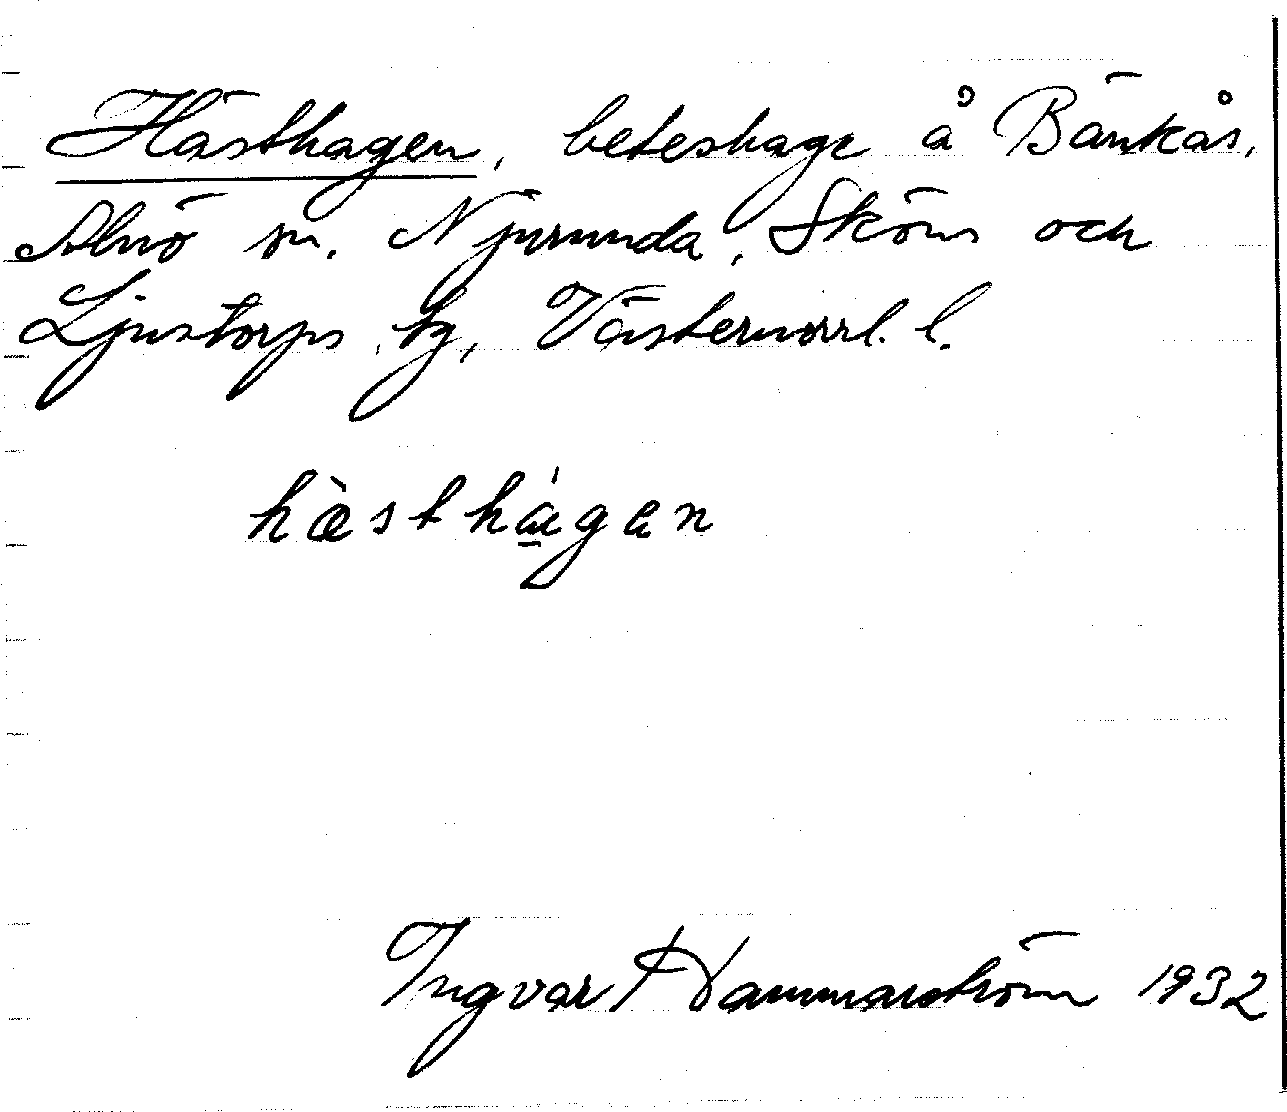 Hästhagen, beteshage å Bänkås,
Alnö sn. Njurunda, Sköns och
Ljustorps tg, Västernorrl. l.
hæ̀sthá̱gen
Ingvar Hammarström 1932